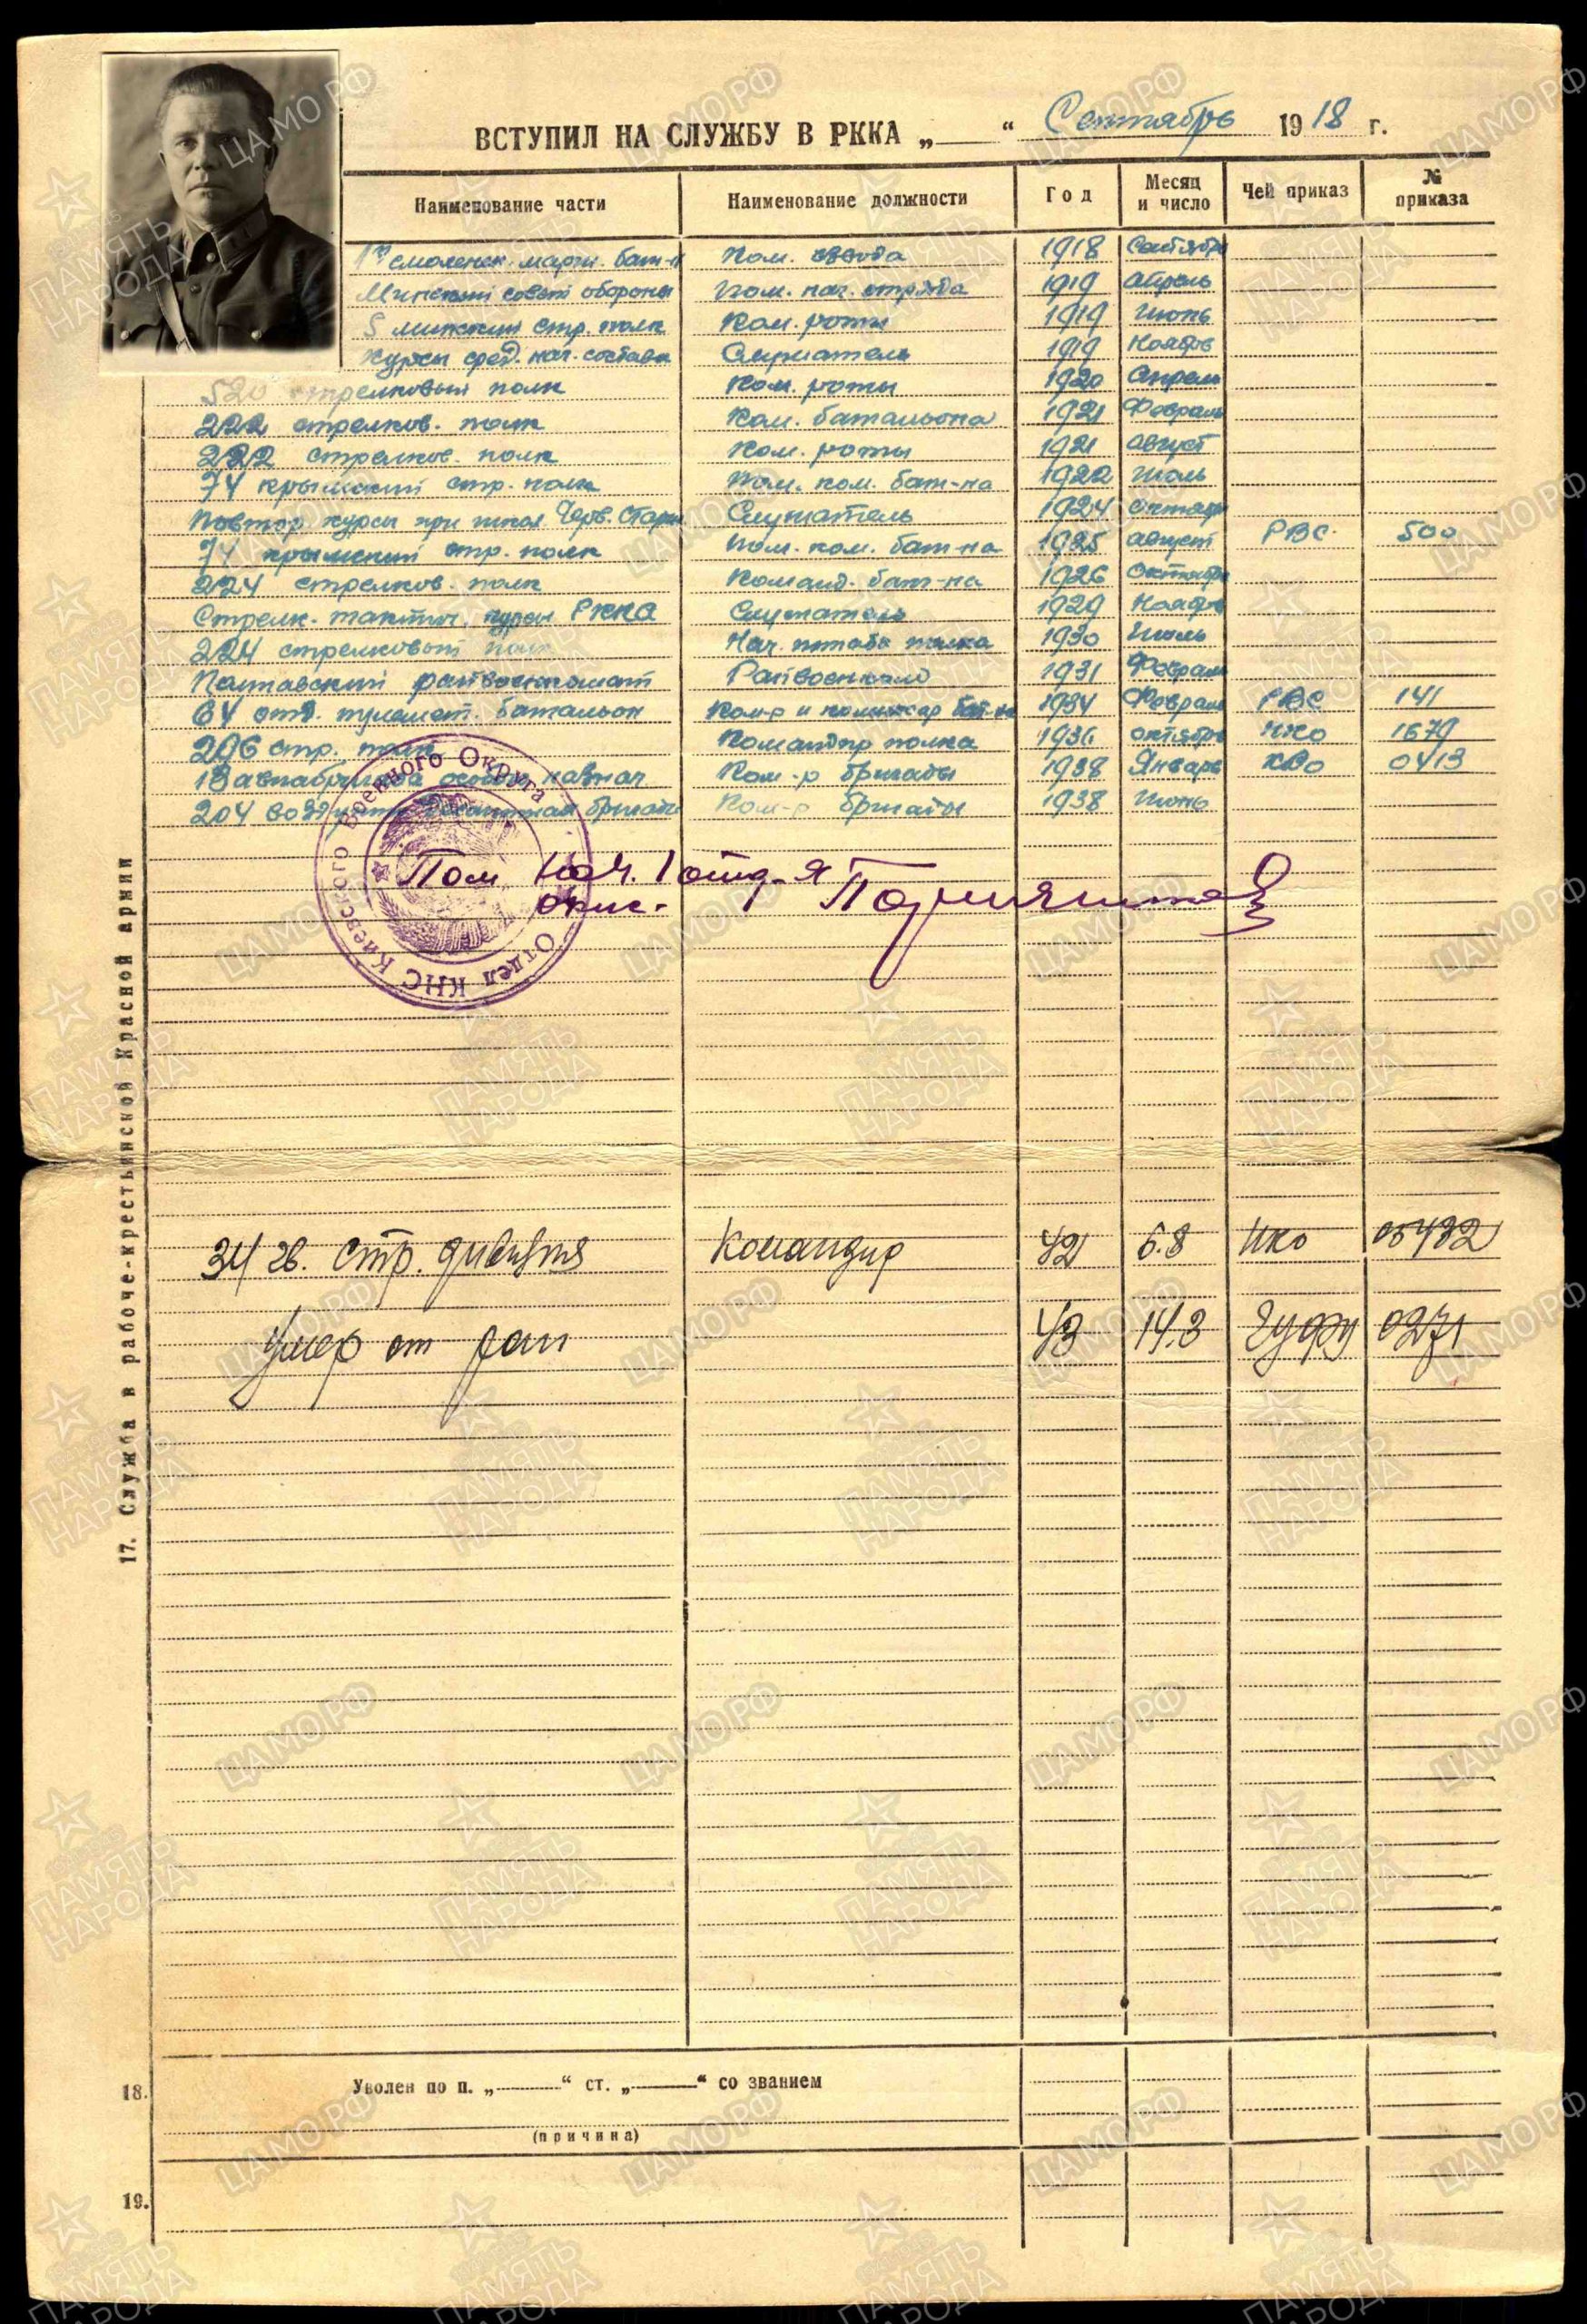 ВСТУПИЛ НА СЛУЖБУ В РККА „ “ Сентябрь 1918 г.
Наименование части Наименование должности Год Месяц и число Чей приказ № приказа
1й смоленск. марш. бат-н Ком. взвода 1918 Сентябрь
Минский совет обороны Пом. нач. отряда 1919 Апрель
5 минский стр. полк Ком. роты 1919 Июнь
Курсы сред. нач. состава Слушатель 1919 Ноябрь
520 стрелковый полк Ком. роты 1920 Апрель
222 стрелков. полк Ком. батальона 1921 Февраль
222 стрелков. полк Ком. роты 1921 август
74 крымский стр. полк Пом. ком. бат-на 1922 Июль
Повтор. курсы при школ. Черв. Старш Слушатель 1924 октябр
74 крымский стр. полк Пом. ком. бат-на 1925 август РВС. 500
224 стрелков. полк Команд. бат-на 1926 октябрь
Стрелк. тактич. курсы РККА Слушатель 1929 Ноябрь
224 стрелковый полк Нач. штаба полка 1930 Июль
Полтавский райвоенкомат Райвоенком 1931 Февраль
64 отд. пулемет. батальон Ком-р и комиссар бат-на 1934 Февраль РВС 141
296 стр. полк Командир полка 1936 октябрь НКО 1679
13 авиабригада особ. назнач Ком-р бригады 1938 Январь КВО 0413
204 воздушно десантная бригада Ком-р бригады 1938 Июнь
Пом. Нач. 1 отд-я
ОКНС.
Отдел КНС Киевского Военного Округа
34 гв. стр. дивизия Командир 42 6.8 НКО 05482
Умер от ран 43 14.3 ГУФУ 0271
17. Служба в рабоче-крестьянской Красной армии
18. Уволен по п. „ “ ст. „ “ со званием
(причина)
19.
ЦАМО РФ
ПАМЯТЬ НАРОДА